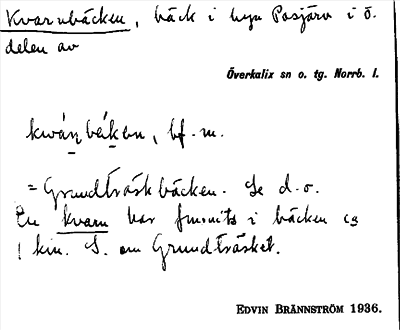 Kvarnbäcken, bäck i byn Posjärv i ö.
delen av
Överkalix sn o. tg. Norrb. l.
bf. m.
= Grundträskbäcken. Se d. o.
En kvarn har funnits i bäcken ca
1 km. S. om Grundträsket.
EDVIN BRÄNNSTRÖM 1936.